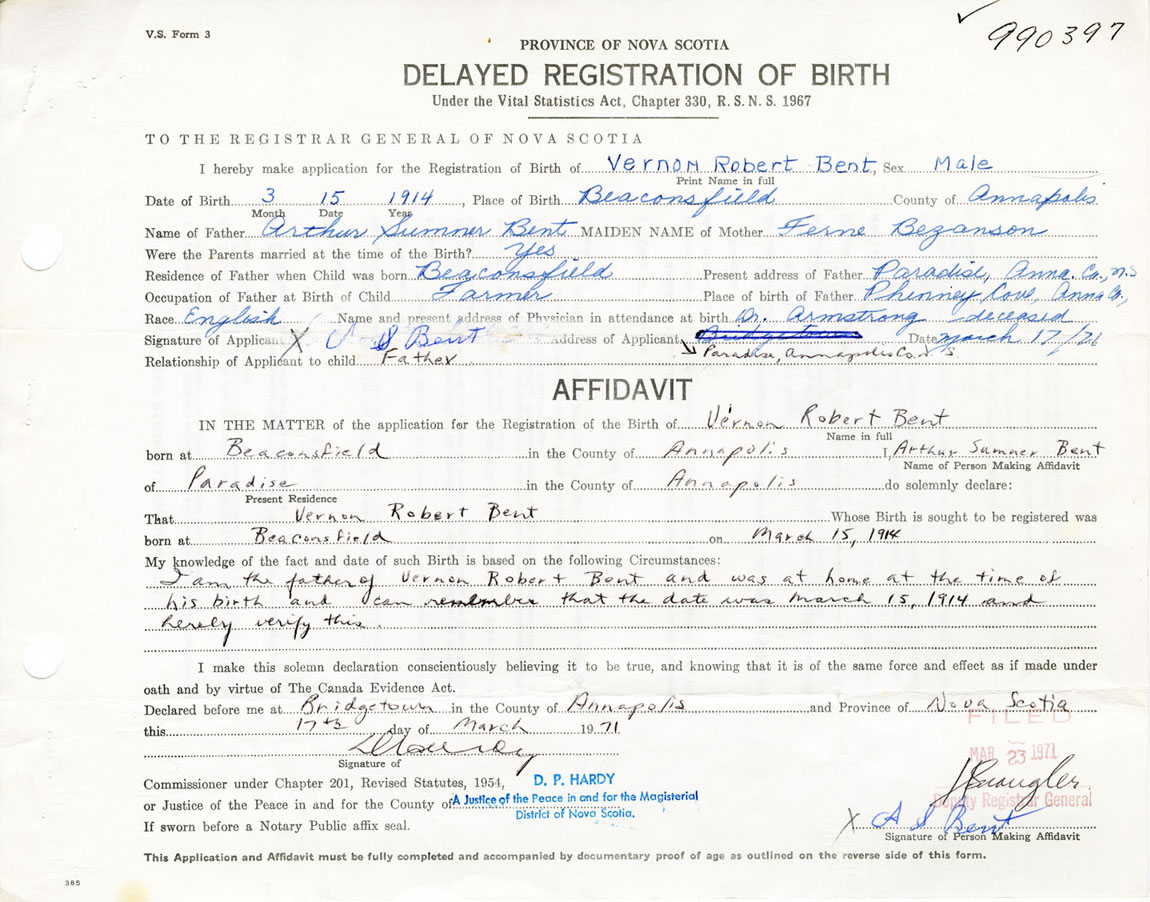 V.S. Form 3
990397
PROVINCE OF NOVA SCOTIA
DELAYED REGISTRATION OF BIRTH
Under the Vital Statistics Act, Chapter 330, R.S.N.S. 1967
TO THE REGISTRAR GENERAL OF NOVA SCOTIA
I hereby make application for the Registration of Birth of Vernon Robert Bent, Sex Male
Print Name in full
Date of Birth 3 15 1914, Place of Birth Beaconsfield County of Annapolis
Month Date Year
Name of Father Arthur Sumner Bent MAIDEN NAME of Mother Ferne Bezanson
Were the Parents married at the time of the Birth? Yes
Residence of Father when Child was born Beaconsfield Present address of Father Paradise, Anna. Co., N.S
Occupation of Father at Birth of Child Farmer Place of birth of Father Phinney Cove, Anna Co.,
Race English Name and present address of Physician in attendance at birth Dr. Armstrong - deceased
Signature of Applicant X A S Bent Address of Applicant Bridgetown Date March 17/71
Relationship of Applicant to child Father Paradise, Annapolis Co. N S
AFFIDAVIT
IN THE MATTER of the application for the Registration of the Birth of Vernon Robert Bent
Name in full
born at Beaconsfield in the County of Annapolis I, Arthur Sumner Bent
Name of Person Making Affidavit
of Paradise in the County of Annapolis do solemnly declare:
Present Residence
That Vernon Robert Bent Whose Birth is sought to be registered was
born at Beaconsfield on March 15, 1914
My knowledge of the fact and date of such Birth is based on the following Circumstances:
I am the father of Vernon Robert Bent and was at home at the time of
his birth and can remember that the date was March 15, 1914 and
hereby verify this.
I make this solemn declaration conscientiously believing it to be true, and knowing that it is of the same force and effect as if made under
oath and by virtue of The Canada Evidence Act.
Declared before me at Bridgetown in the County of Annapolis and Province of Nova Scotia
FILED
this 17th day of March 1971
MAR 23 1971
Signature of
Commissioner under Chapter 201, Revised Statutes, 1954, D. P. HARDY
or Justice of the Peace in and for the County of A Justice of the Peace in and for the Magisterial
Deputy Registrar General
District of Nova Scotia.
X A S Bent
If sworn before a Notary Public affix seal.
Signature of Person Making Affidavit
This Application and Affidavit must be fully completed and accompanied by documentary proof of age as outlined on the reverse side of this form.
385